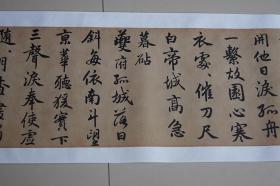 開他日淚孤舟
一繫故園心寒
衣處〻催刀尺
白帝城高急
暮砧
夔府孤城落日
斜每依南斗望
京華聽猿實下
三聲淚奉使虛
隨